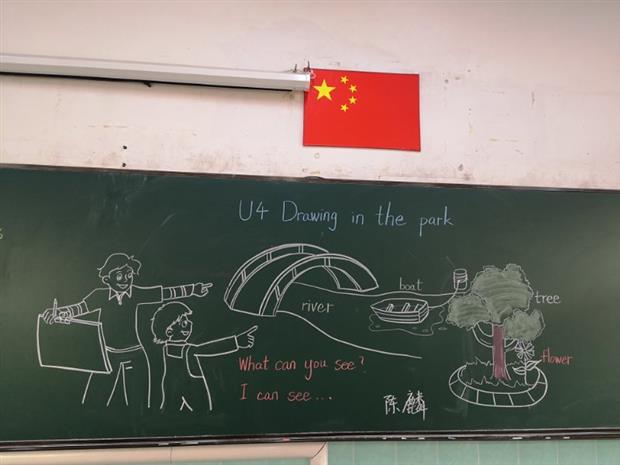 U4 Drawing in the park
boat
river
tree
flower
What can you see?
I can see...
陈麟